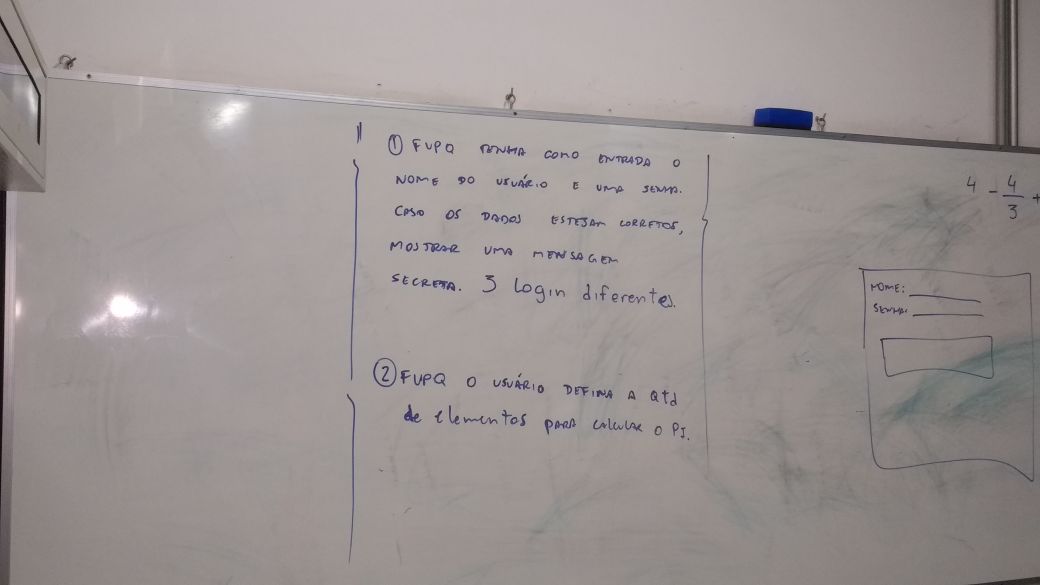 ① FUPQ TENHA COMO ENTRADA O
NOME DO USUÁRIO E UMA SENHA.
CASO OS DADOS ESTEJAM CORRETOS,
MOSTRAR UMA MENSAGEM
SECRETA. 3 Login diferentes.
② FUPQ O USUÁRIO DEFINA A Qtd
de elementos PARA CALCULAR O PI.
4 - 4/3 +
NOME:
SENHA: